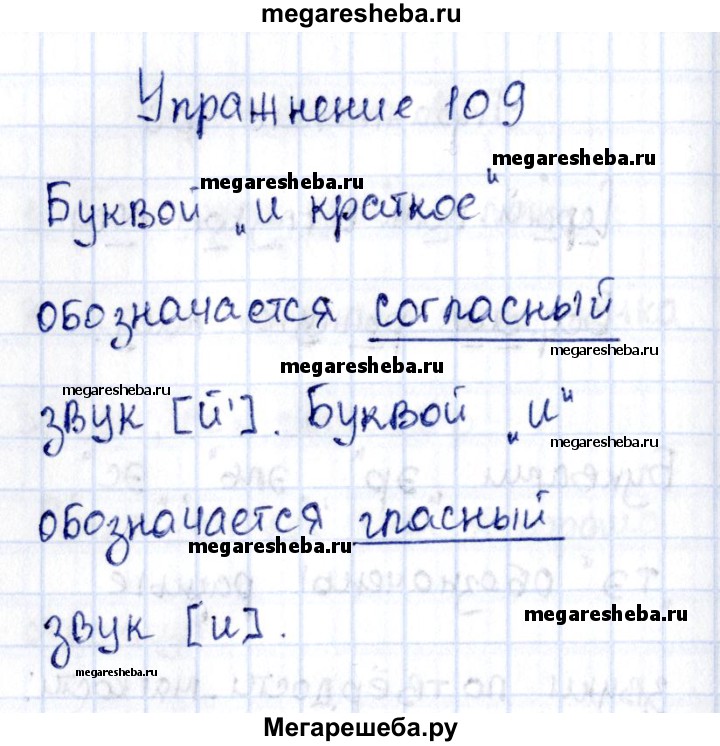 megaresheba.ru
Упражнение 109
megaresheba.ru
megaresheba.ru
Буквой „и краткое“
обозначается согласный
megaresheba.ru
megaresheba.ru
megaresheba.ru
звук [й']. Буквой „и“
megaresheba.ru
обозначается гласный
megaresheba.ru
megaresheba.ru
звук [и].
megaresheba.ru
Мегарешеба.ру